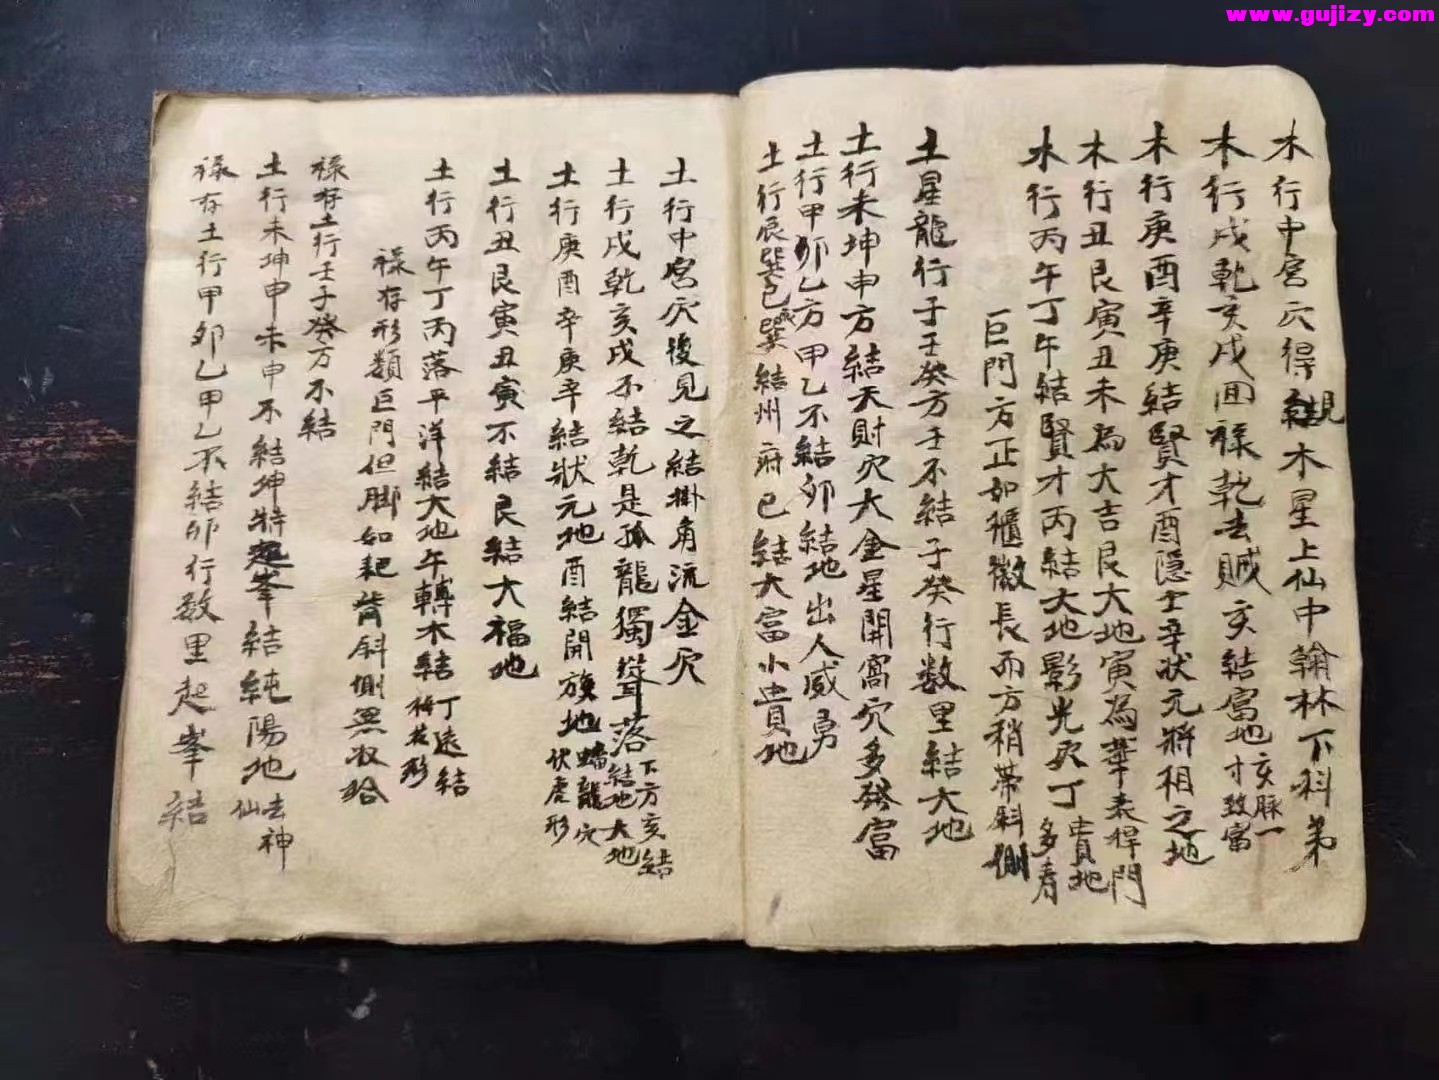 www.gujizy.com
木行中宮穴得結見木星上仙中翰林下科弟
木行戌乾亥戌回祿乾去賊亥結富地亥脉一寸致富
木行庚酉辛庚結賢才酉隱士辛狀元將相之地
木行丑艮寅丑未為大吉艮大地寅為華表捍門貴地
木行丙午丁午結賢才丙結大地影光灾丁多寿
巨門方正如櫃徽長而方稍帶斜側
土星龍行子壬癸方壬不結子癸行数里結大地
土行未坤申方結天財穴大金星開窩穴多發富
土行甲卯乙方甲乙不結卯結地出人威勇
土行辰巽巳辰巽結州府巳結大富小貴地
土行中宮穴後見之結掛角流金穴
土行戌乾亥戌不結乾是孤龍獨聳落下方亥結結地大地
土行庚酉辛庚辛結狀元地酉結開旗地蟠龍穴伏虎形
土行丑艮寅丑寅不結艮結大福地
土行丙午丁丙落平洋結大地午轉木結丁遠結梅花形
祿存形類巨門但脚如耙背斜側無收拾
祿存土行壬子癸方不結
土行未坤申未申不結坤特起峯結純陽地去神仙
祿存土行甲卯乙甲乙不結卯行数里起峯結